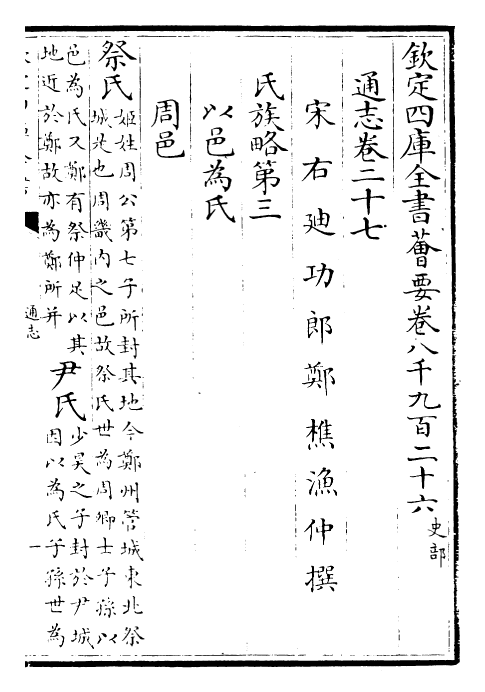 欽定四庫全書薈要卷八千九百二十六 史部
通志卷二十七
宋右迪功郎鄭樵漁仲撰
氏族略第三
以邑為氏
周邑
祭氏 姬姓周公第七子所封其地今鄭州管城東北祭
城是也周畿内之邑故祭氏世為周卿士子孫以
邑為氏又鄭有祭仲足以其
地近於鄭故亦為鄭所并
尹氏 少昊之子封於尹城
因以為氏子孫世為
通志
一